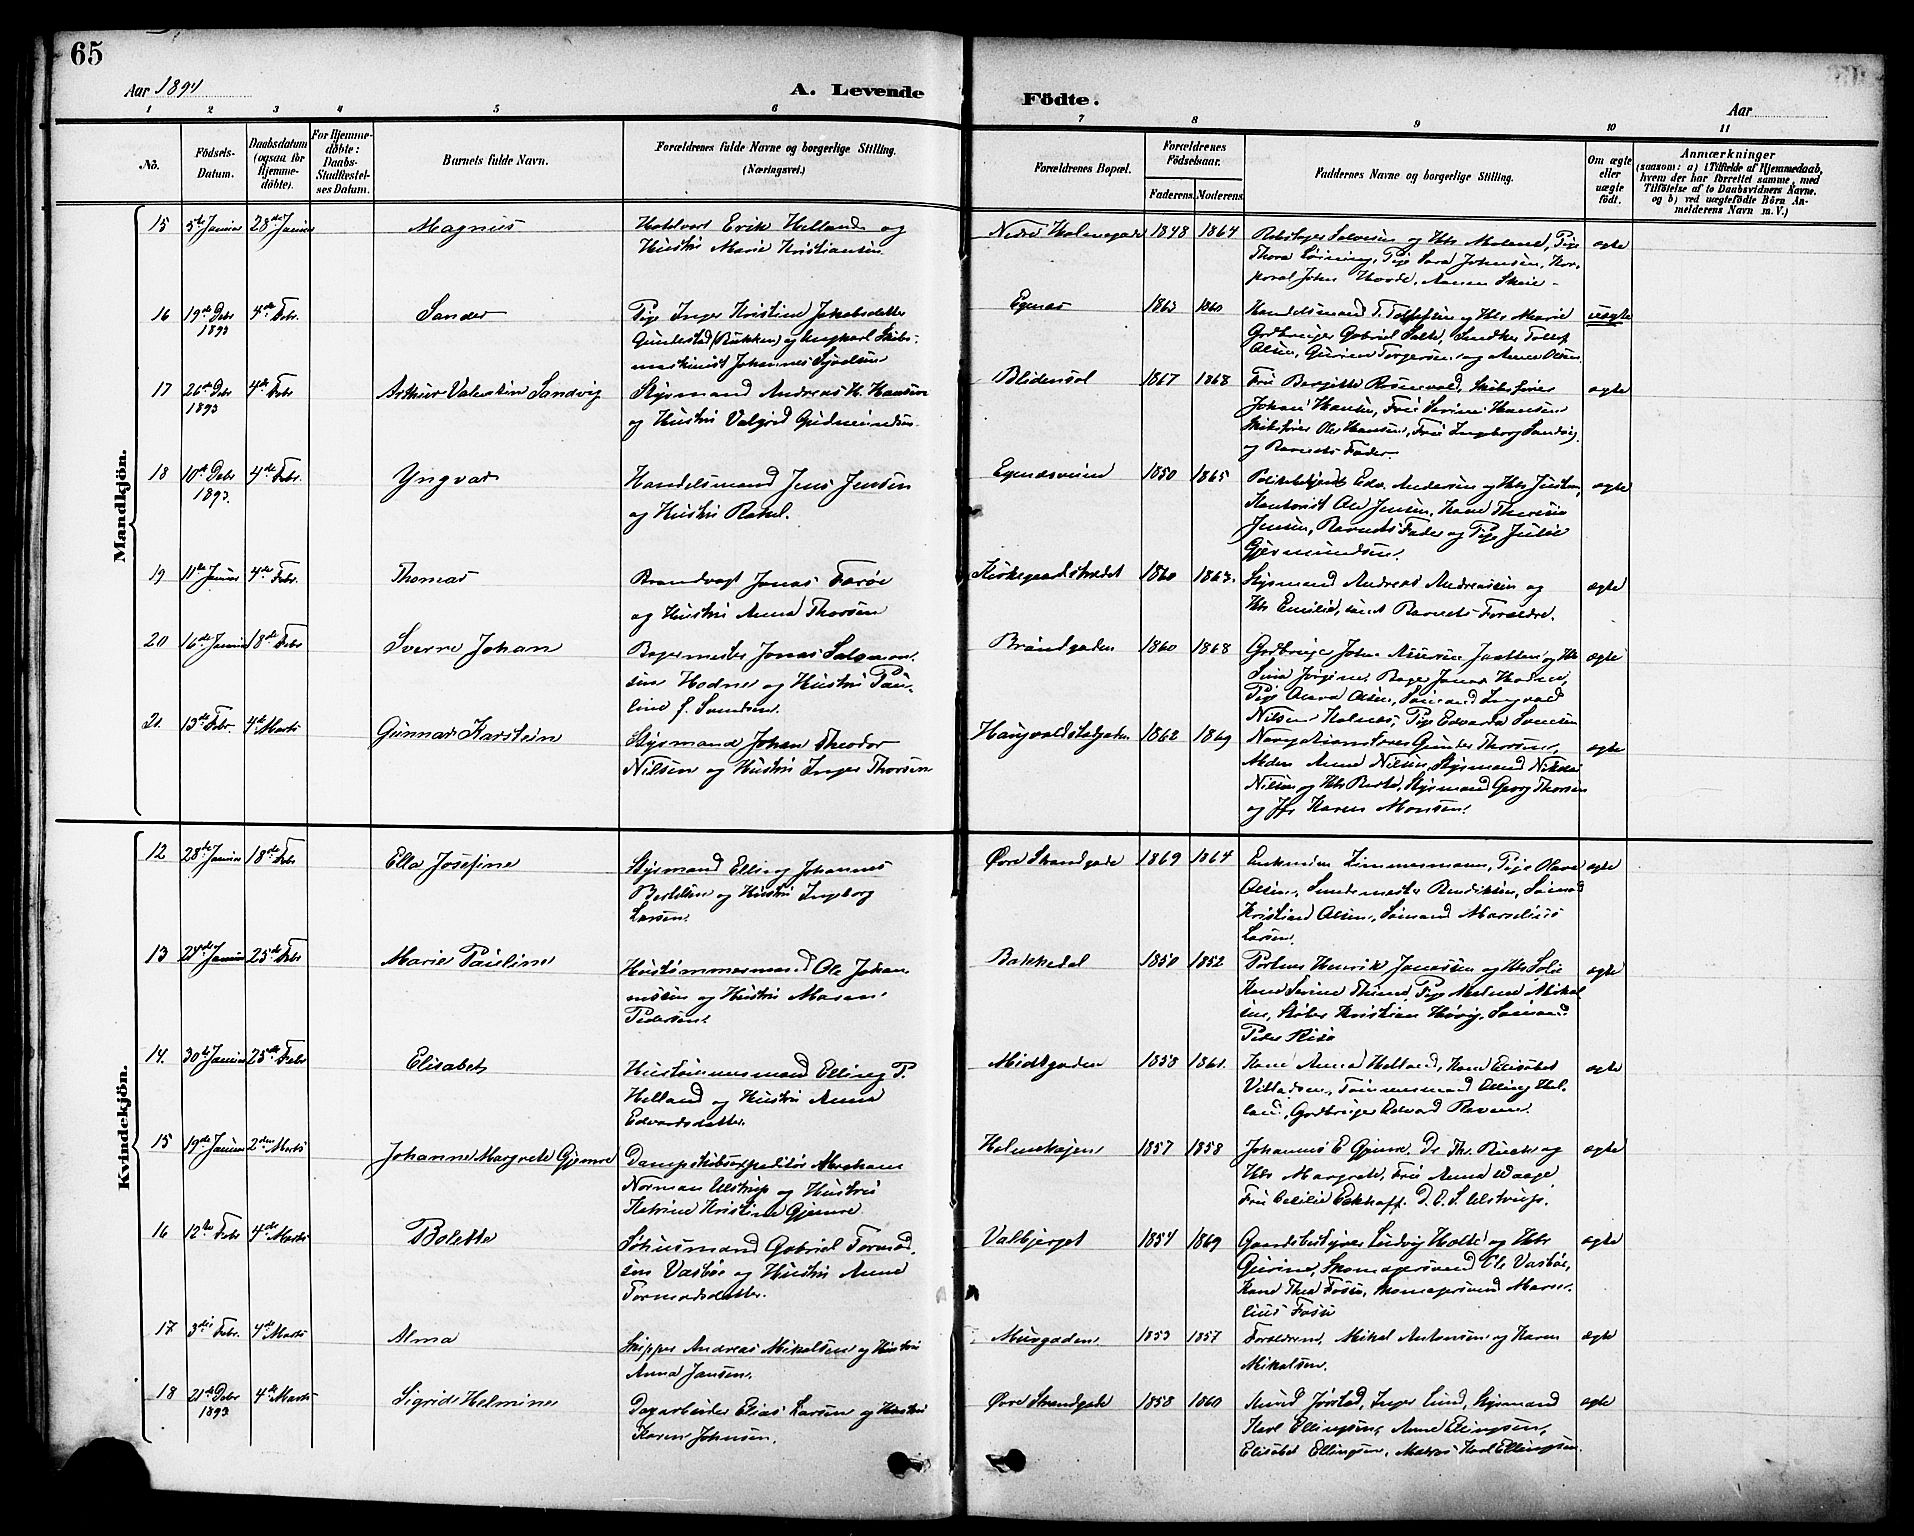 65
Aar 1894
A. Levende
Födte.
Aar
1 2 3 4 5 6 7 8 9 10 11
No.
Födsels-Datum.
Daabsdatum (ogsaa for Hjemme-döbte).
For Hjemme-döbte: Daabs-Stadfestel-ses Datum.
Barnets fulde Navn.
Forældrenes fulde Navne og borgerlige Stilling.
(Næringsvei.)
Forældrenes Bopæl.
Forældrenes Födselsaar.
Faderens. Moderens.
Faddernes Navne og borgerlige Stilling.
Om ægte eller uægte födt.
Anmærkninger
(saasom: a) i Tilfælde af Hjemmedaab,
hvem der har forrettet samme, med
Tilföielse af to Daabsvidners Navne.
og b) ved uægtefödte Börn An-
melderens Navn m. V.)
Mandkjön.
15 5te Januar 28de Januar Magnus
Erik Helland og
Hustru Marie Kristiansen.
Nedre Holmegade 1848 1864
Salvesen og Hts Malene, Pige
Thora Pige Sara Johnsen, Kor-
poral John
ægte
16 19de Debr 1893 4de Febr. Sander
Pige Inger Kristine Jakobsdatter
og Ungkarl Skibs-
maskinist Johannes
Egenæs 1863 1860
Handelsmand T. og Hts Marie
Gabriel
Olsen, Gurine Torgersen og Anne Olsen
uægte
17 26de Debr 1893 4de Febr Arthur Valentin Sandvig
Styrmand Andreas H. Hansen
og Hustru Valgrid Gudmundsen
Blidensol 1867 1868
Fru Bergitte Rosenvold, Skibsfører
Johan Hansen, Fru Serine Hansen
Skibsfører Ole Hansen, Fru Ingborg Sandvig
og Barnets Fader.
ægte
18 10de Debr 1893. 4de Febr. Yngvar
Handelsmand Jens Jensen
og Hustru Rakel.
Egenæsveien 1850 1865
Politibetjent Edv. Andersen og Hts
Kontorist Ole Jensen, Kone Theresia
Jensen, Barnets Fader og Pige Julie
Gjermundsen.
ægte
19 11te Januar 4de Febr. Thomas
Brandvagt Jonas Farøe
og Hustru Anna Thorsen
Kirkegaardstrædet 1860 1863
Styrmand Andreas Andreassen og
Hts Emilie, samt Barnets Forældre.
ægte
20 16de Januar 18de Febr Sverre Johan
Bagermester Jonas Salomon-
sen Hodne og Hustru Pau-
line f. Svendsen.
Brøndgaden 1860 1868
Gadbruger John og Hts
Sina Jørgine, Bager Jonas Hodne,
Pige Olava Olsen, Sømand Ingvald
Nilsen Holnes, Pige Edvarda Svensen
ægte
21. 13de Febr. 4de Marts Gunnar Karstein
Styrmand Johan Theodor
Nilsen og Hustru Inger Thorsen
Haugvaldstadgaden 1862 1869
Navigationslærer Gunder Thorsen,
Anne Nilsen, Styrmand
Nilsen og Hts Berta, Styrmand Georg Thorsen
og Jfr. Karen Monsen.
ægte
Kvindekjön.
12 28de Januar 18de Febr Ella Josefine
Styrmand Elling Johannes
Bertelsen og Hustru Ingborg
Larsen.
Øvre Strandgade 1869 1864
Zimmermann, Pige Olava
Olsen, Smedemester Bendiksen, Sømand
Kristian Olsen, Sømand Marselius
Larsen.
ægte
13 24de Januar 25de Febr Marie Pauline
Hustømmermand Ole Johan-
nessen og Hustru Maren
Pedersen.
Bakkedal 1850 1852
Henrik Jonassen og Hts
Kone Serine Pige Malene Mikal-
sen, Kristian Høvig, Sømand
Peder Risø
ægte
14. 30te Januar 25de Febr Elisabet
Hustømmermand Elling P.
Helland og Hustru Anna
Edvardsdatter.
Midtgaden 1858 1861
Kone Anna Helland, Kone Elisabet
Villadsen, Tømmermand Elling Hel-
land, Gadbruger Edvard
ægte
15 19de Januar 2den Marts Johanne Margrete Gjemre
Dampskibsexpeditør Abraham
Norman Ulstrup og Hustru
Katrine Kristine Gjemre
Holmekajen 1857 1858
Johannes E Gjemre, Dr. Th. og
Hts Margrete, Fru Anna Waage
Fru Cecilie Eckhoff, D. C. S. Ulstrup.
ægte
16 12te Febr 4de Marts Bolette
Søhusmand Gabriel Tormod-
sen Vasbøe og Hustru Anne
Tormodsdatter.
Valbjerget 1854 1869
Gaardsbestyrer Ludvig Holte og Hts
Gurine, Skomagersvend Ole Vasbøe,
Kone Thea Fosse, Skomagersvend Marse-
lius Fosse
ægte
17 3die Febr. 4de Marts Alma
Skipper Andreas Mikalsen og Hustru
Anna Jansen.
Murgaden 1853 1857
Forældrene, Mikal Antonsen og Karen
Mikalsen.
ægte
18 21de Debr 1893 4de Marts Sigrid Helmine
Dagarbeider Elias Larsen og Hustru
Karen Johnsen.
Øvre Strandgade 1858 1860
Jørstad, Inger Lund, Styrmand
Karl Ellingsen, Anne Ellingsen,
Elisabet Ellingsen, Karl Ellingsen.
ægte